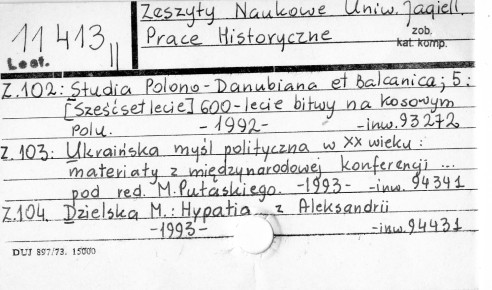 Zeszyty Naukowe Uniw. Jagiell.
11413 II
Prace Historyczne zob. kat. komp.
Z.102: Studia Polono-Danubiana et Balcanica; 5:
[Sześćsetlecie] 600-lecie bitwy na Kosowym
Polu. -1992- -inw. 93272
Z.103: Ukraińska myśl polityczna w XX wieku:
materiały z międzynarodowej konferencji ...
pod red. M. Pułaskiego. -1993- -inw. 94341
Z.104 Dzielska M.: Hypatia z Aleksandrii
-1993- -inw. 94431
DUJ 897/73. 15000